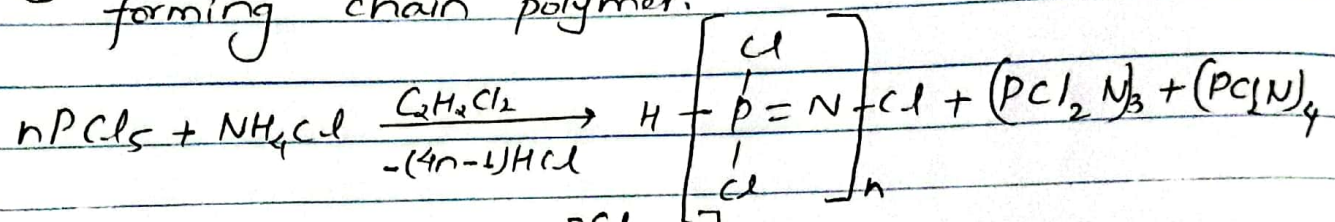 forming chain polymer.
nPCl5 + NH4Cl C2H2Cl2 → -(4n-1)HCl H [ Cl P = N Cl ]n Cl + (PCl2N)3 + (PCl2N)4